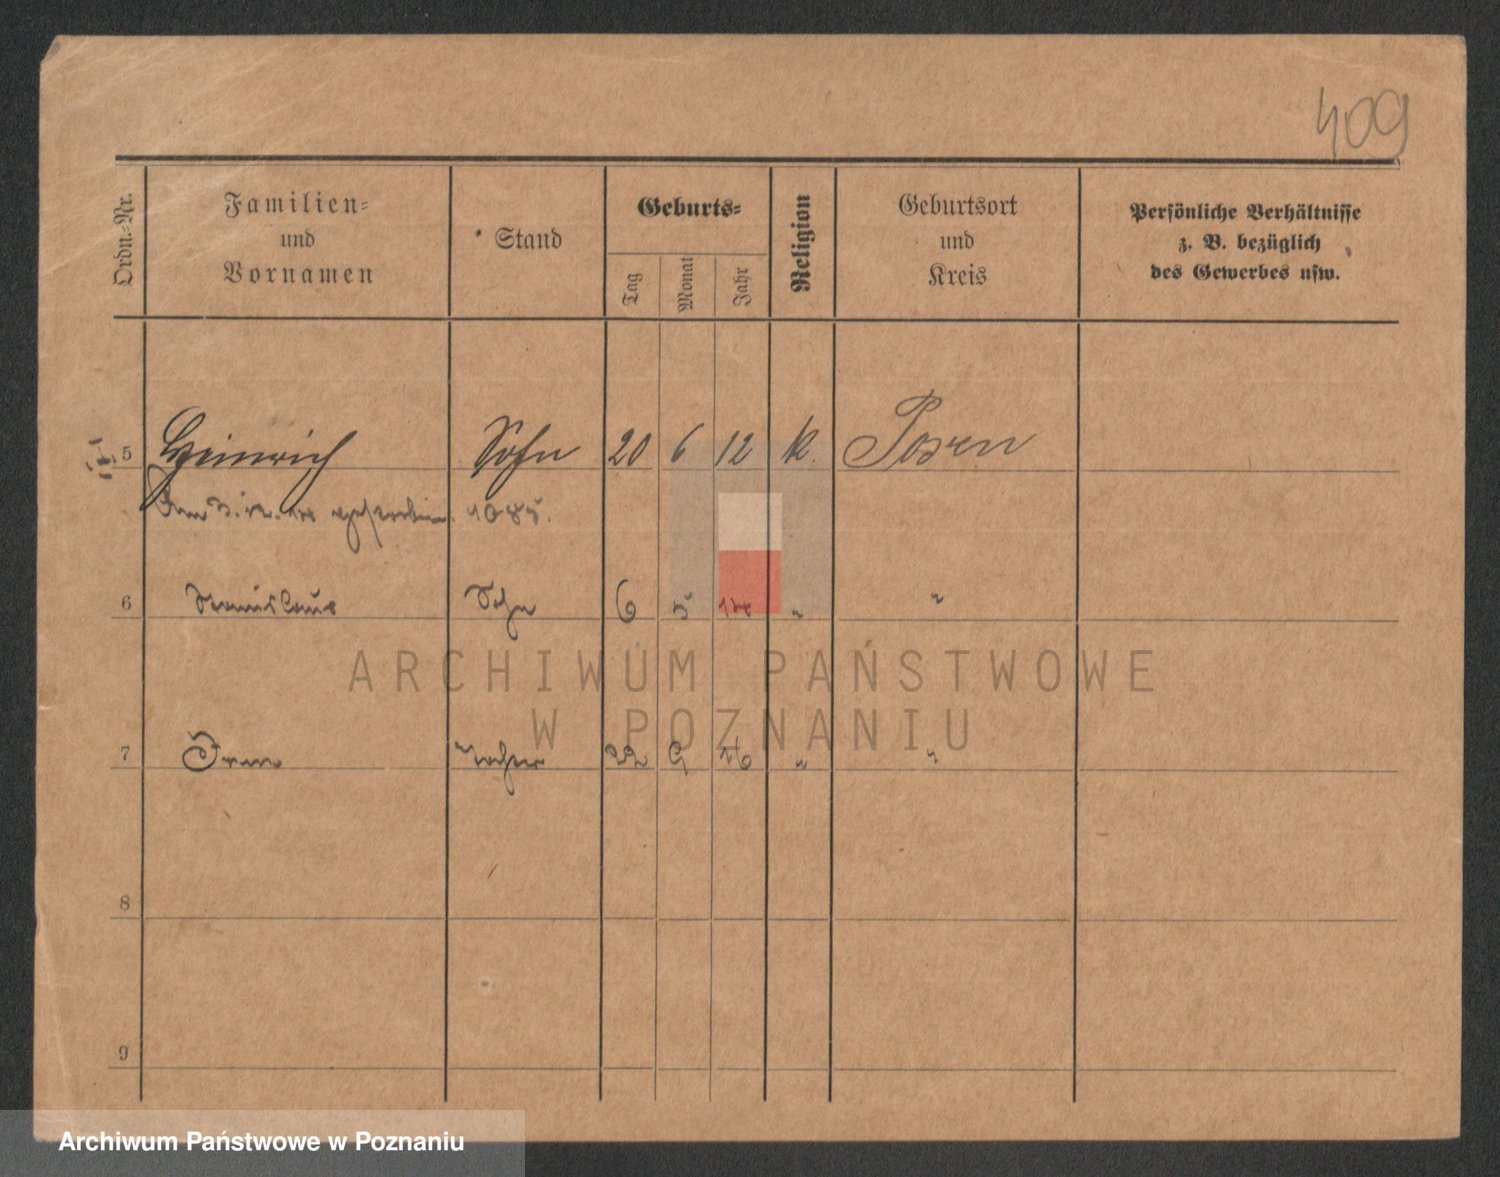 409
Ordn.-Nr. Familien- und Vornamen Stand Geburts- Tag Monat Jahr Religion Geburtsort und Kreis Persönliche Verhältnisse z. B. bezüglich des Gewerbes usw.
5 Heinrich Sohn 20 6 12 k. Posen
Am 3. 12. gestorben.
6 Stanislaus Sohn 6 5 14 " "
ARCHIWUM PAŃSTWOWE
W POZNANIU
7 Irene Tochter 22 9 16 " "
8
9
Archiwum Państwowe w Poznaniu